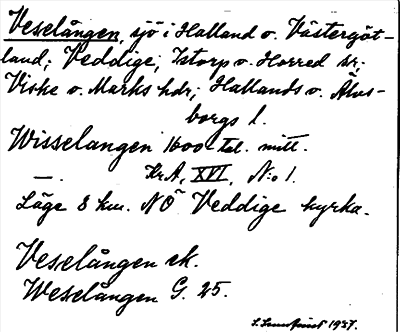 Veselången, sjö i Halland o. Västergöt-
land; Veddige, Istorp o. Horred sr;
Viske o. Marks hdr; Hallands o. Älvs-
borgs l.
Wisselangen 1600-tal. mitt.
—. Kr.A, XVI, N:o 1.
Läge 8 km. NÖ Veddige kyrka.
Veselången ek.
Weselången G. 25.
1937.